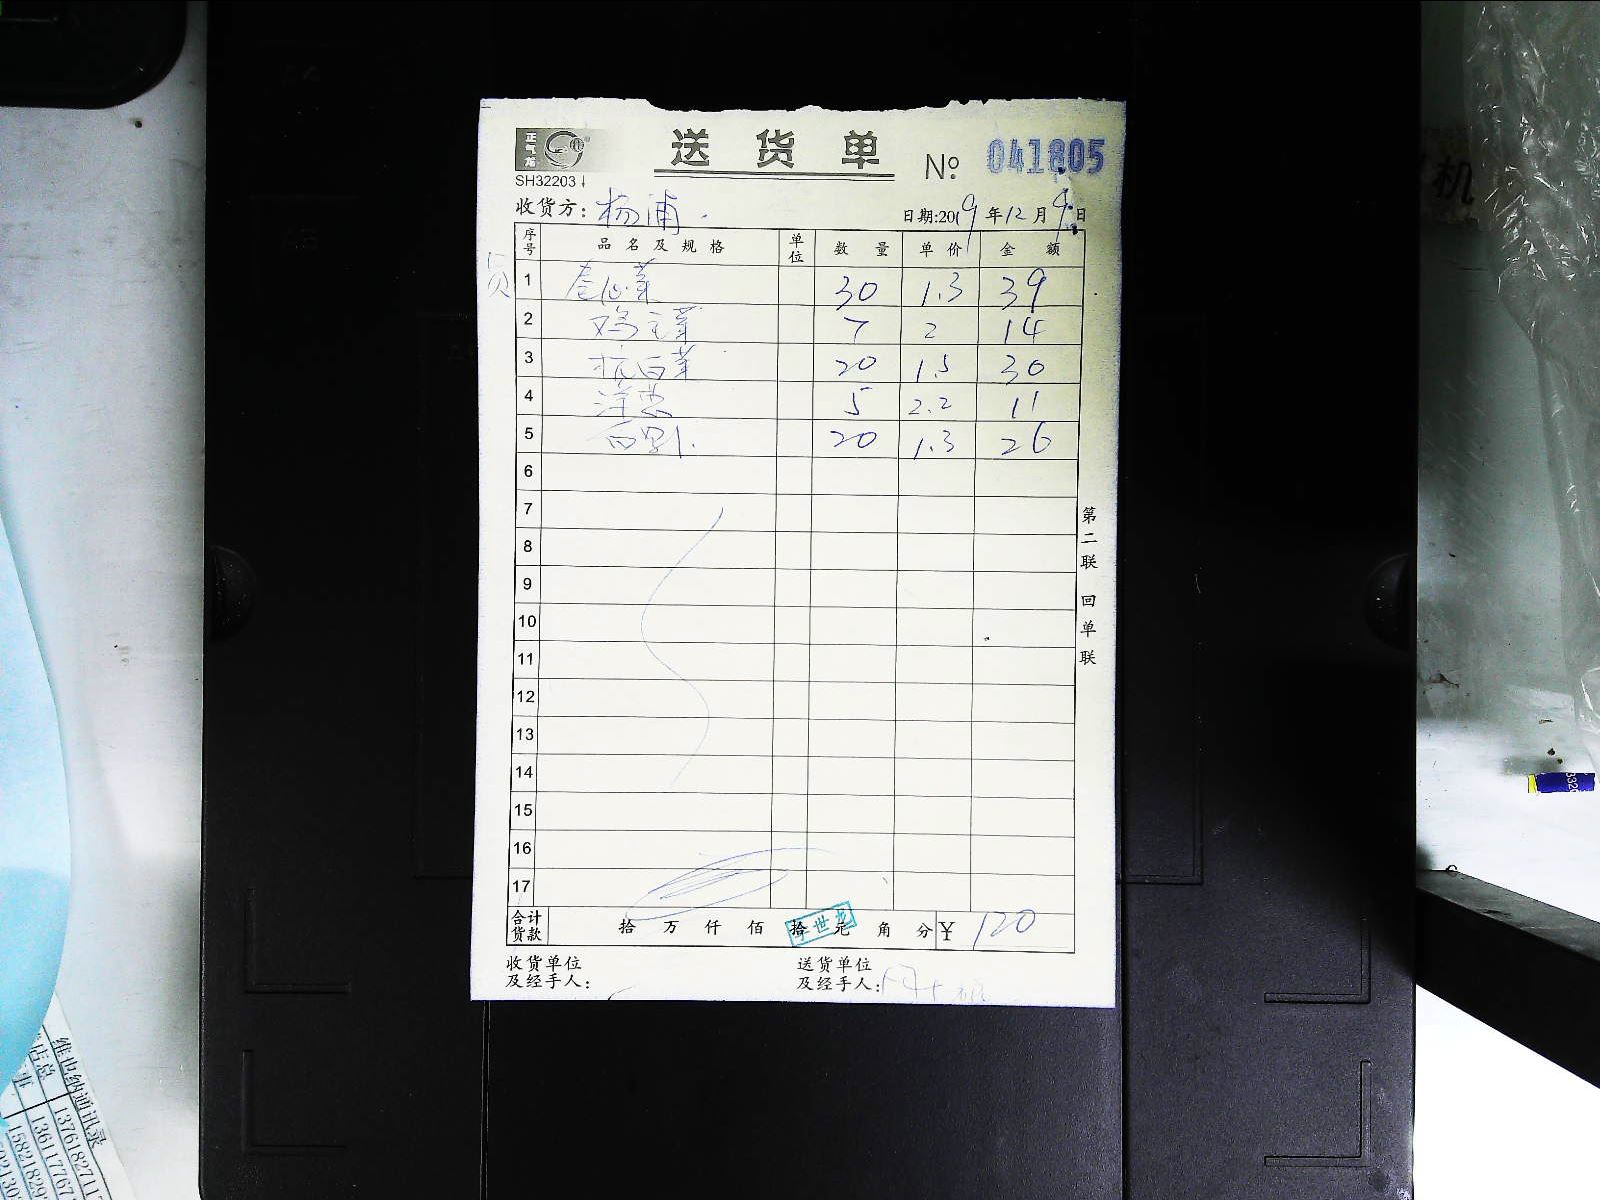 正气龙
送货单 № 041805
SH32203
收货方：杨浦 日期:2019年12月9日
序号 品名及规格 单位 数量 单价 金额
员
1 卷心菜 30 1.3 39
2 鸡毛菜 7 2 14
3 杭白菜 20 1.5 30
4 洋葱 5 2.2 11
5 白萝卜 20 1.3 26
6
7
8
9
10
11
12
13
14
15
16
17
合计货款 拾 万 仟 佰 拾 元 角 分 ¥ 120
收货单位
及经手人：
送货单位
及经手人：
第二联 回单联
机
维也纳通讯录
店总